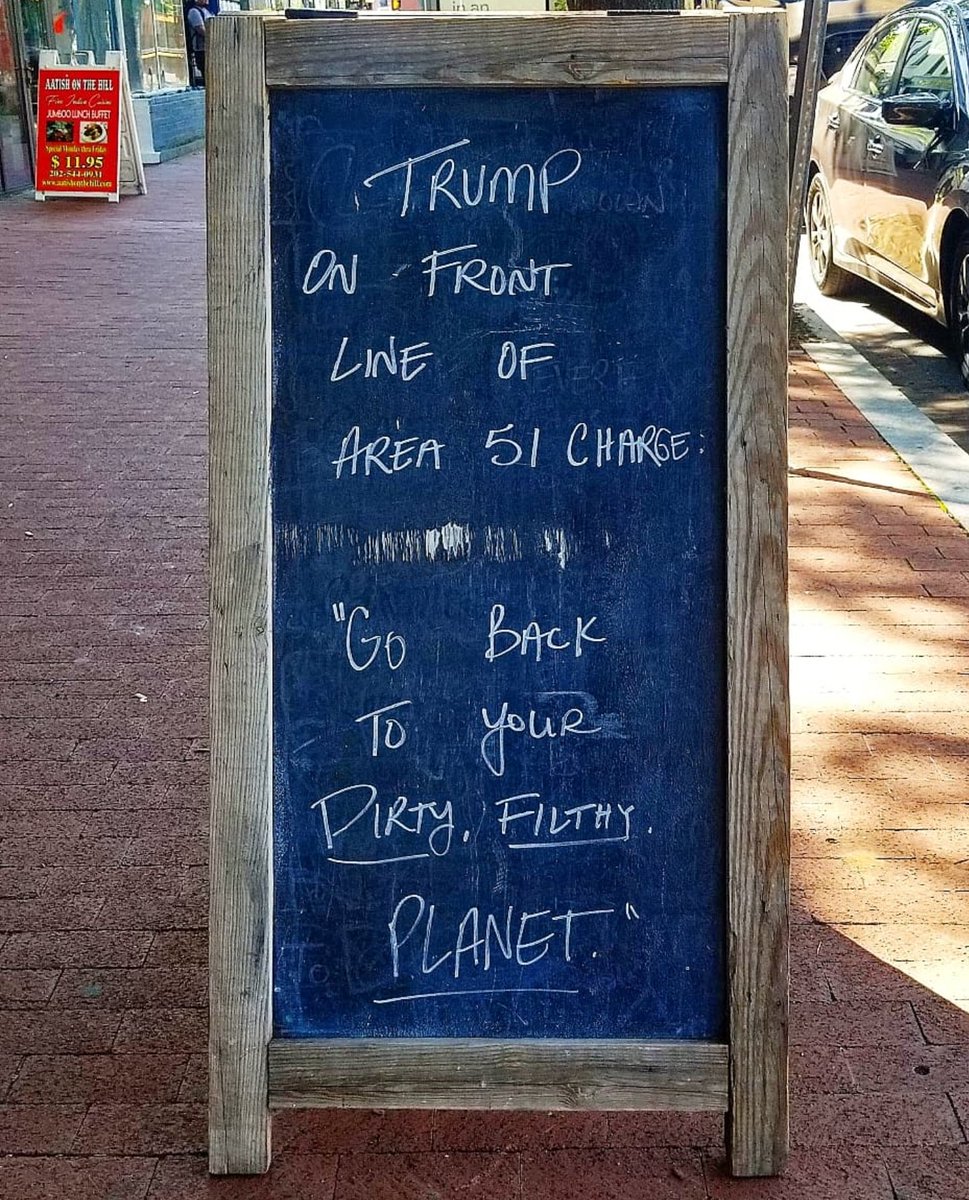 in an
AATISH ON THE HILL
Fine Indian Cuisine
JUMBOO LUNCH BUFFET
Special Monday thru Friday
$ 11.95
202-544-0931
www.aatishonthehill.com
TRUMP
ON FRONT
LINE OF
AREA 51 CHARGE:
"GO BACK
TO YOUR
DIRTY, FILTHY,
PLANET."